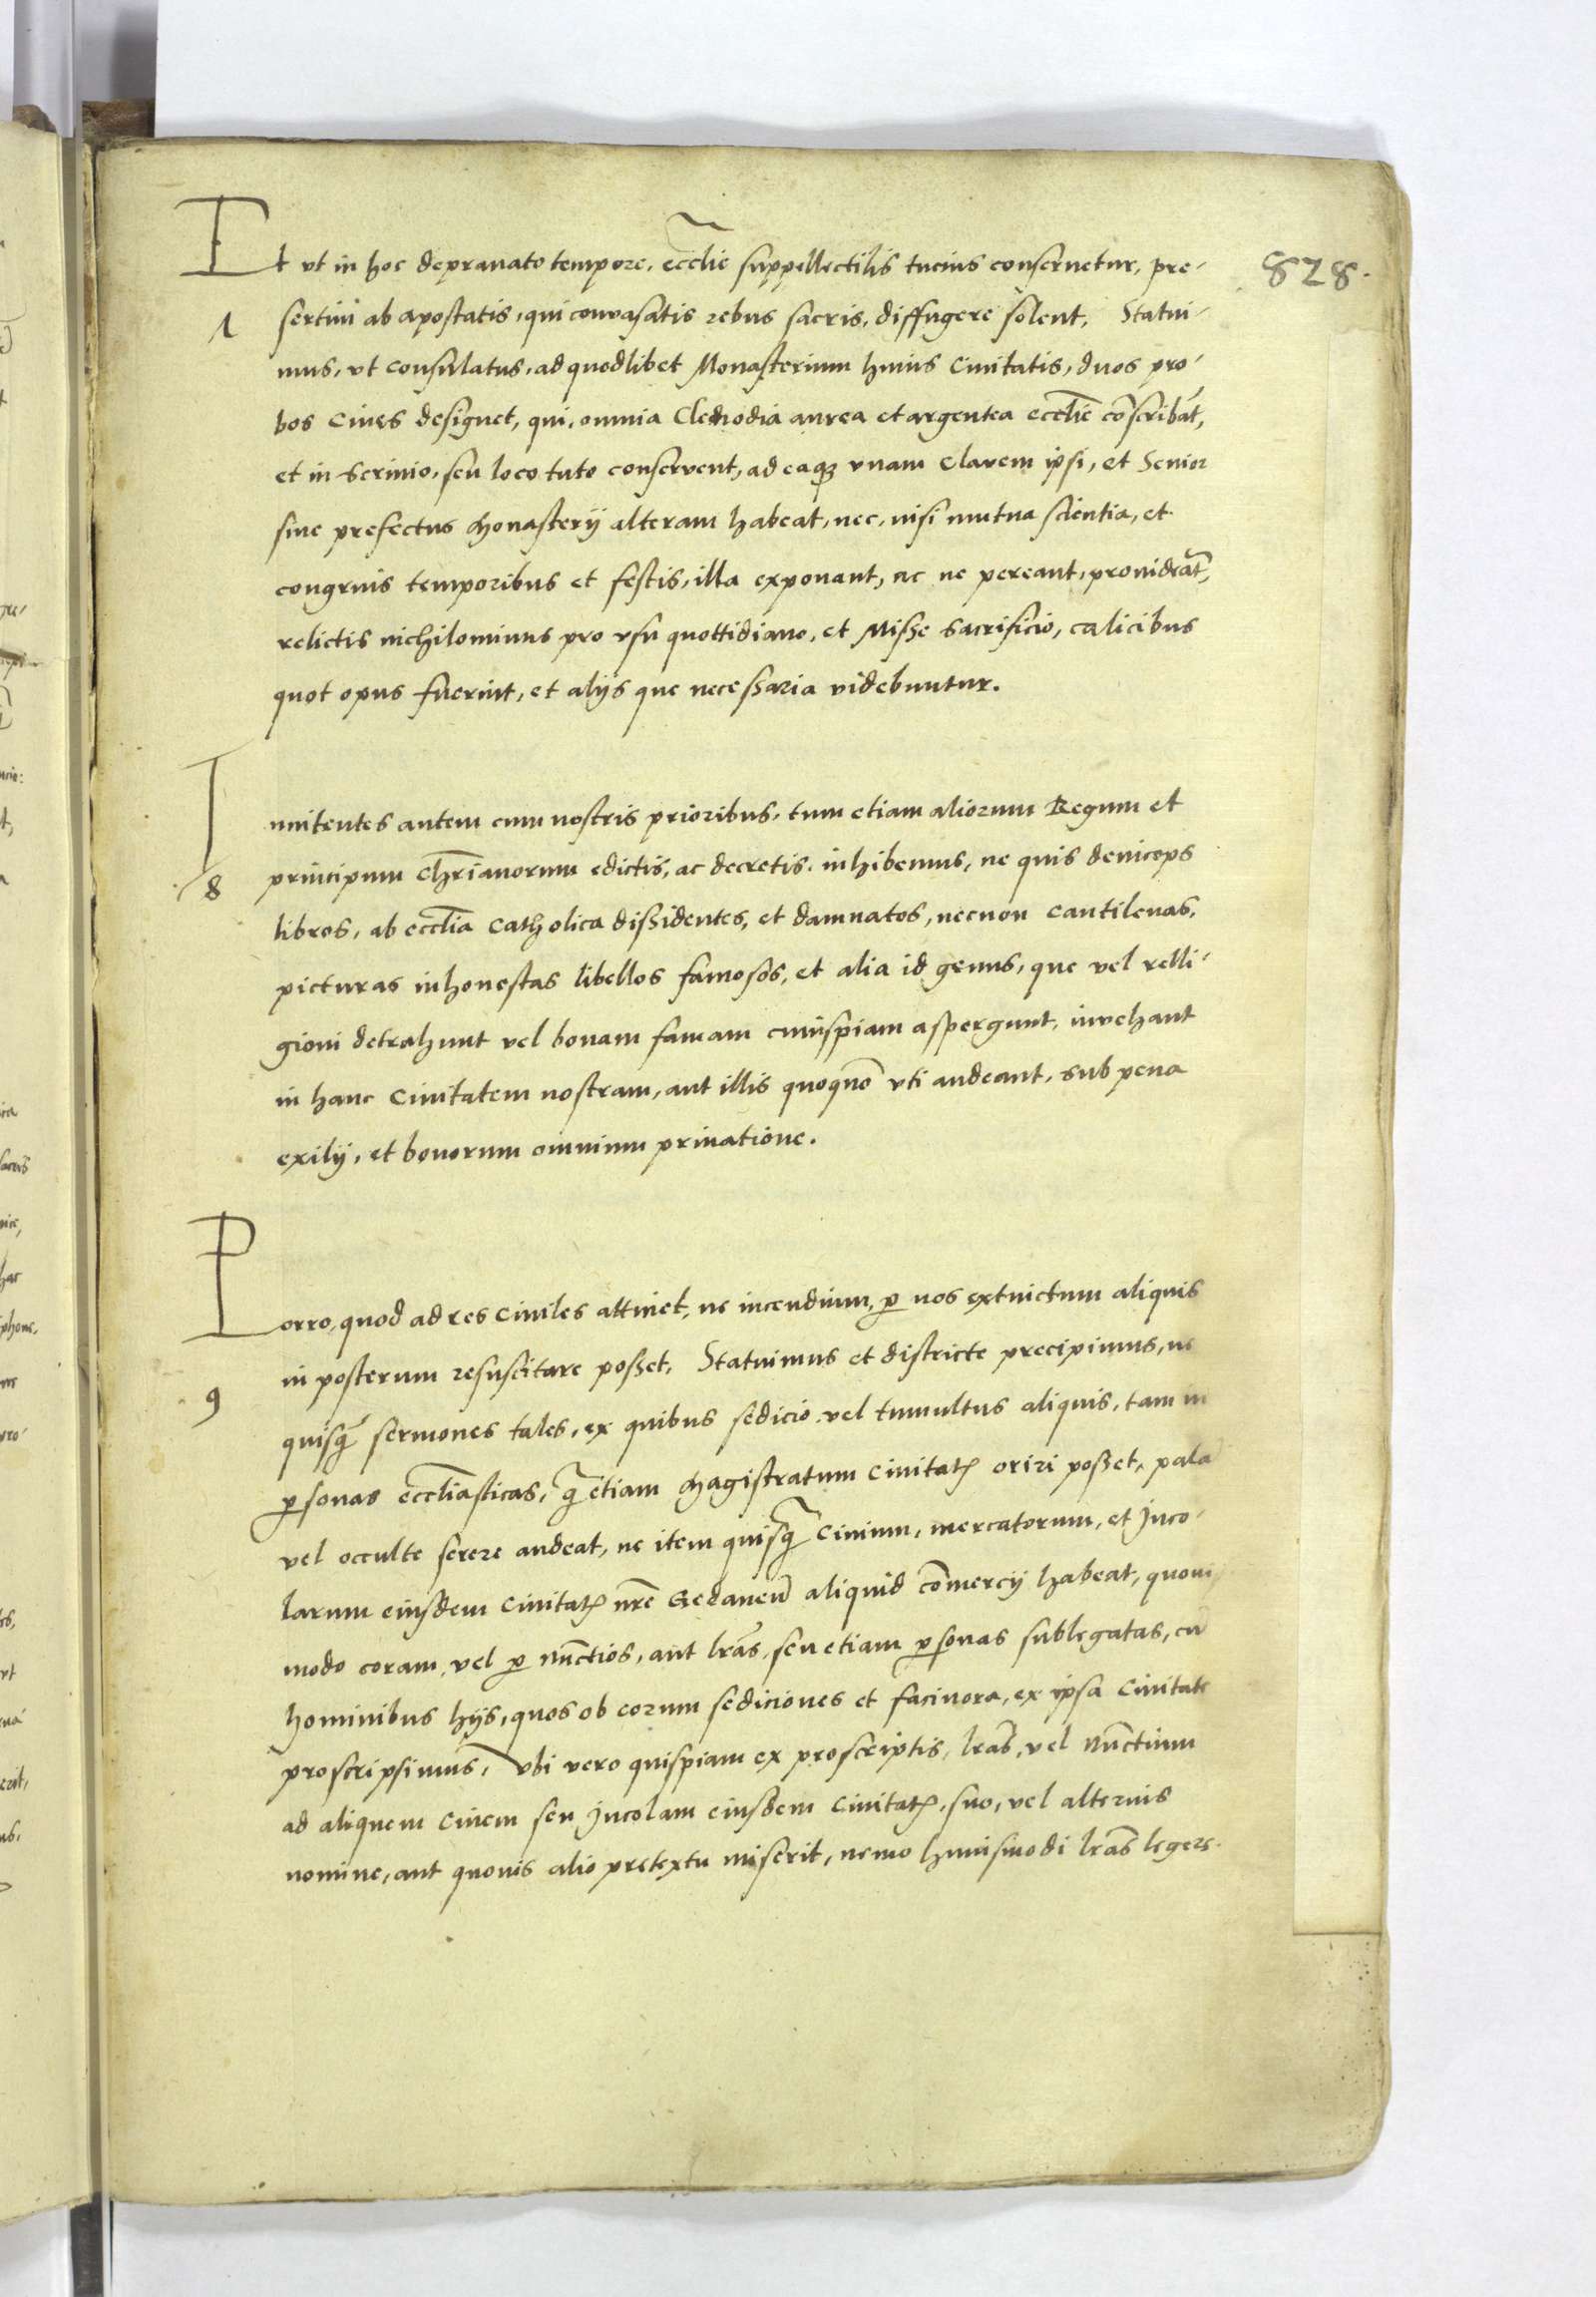 Et vt in hoc deprauato tempore, ecclie suppellectilis tucius conseruetur, pre-
828.
sertim ab apostatis, qui conuasatis rebus sacris, diffugere solent, Statui-
Λ
mus, vt Consulatus, ad quodlibet Monasterium huius Ciuitatis, duos pro-
bos Ciues designet, qui, omnia Clenodia aurea et argentea ecclie cōscribāt,
et in Scrinio, seu loco tuto conseruent, ad eaq; vnam Clauem ipsi, et Senior
siue prefectus Monasterij alteram habeat, nec, nisi mutua scientia, et
congruis temporibus et festis, illa exponant, ac ne pereant, prouideāt,
relictis nichilominus pro vsu quottidiano, et Misse Sacrificio, calicibus
quot opus fuerint, et alijs que necessaria videbuntur.
Innitentes autem cum nostris prioribus, tum etiam aliorum Regum et
8
principum Chrianorum edictis, ac decretis, inhibemus, ne quis deinceps
libros, ab ecclia Catholica dissidentes, et damnatos, necnon Cantilenas,
picturas inhonestas libellos famosos, et alia id genus, que vel relli-
gioni detrahunt vel bonam famam cuiuspiam aspergunt, inuehant
in hanc Ciuitatem nostram, aut illis quoquō vti audeant, sub pena
exilij, et bonorum omnium priuatione.
Porro, quod ad res Ciuiles attinet, ne incendium, p nos extinctum aliquis
in posterum resuscitare posset, Statuimus et districte precipimus, ne
9
quisq̄ sermones tales, ex quibus sedicio vel tumultus aliquis, tam in
psonas eccliasticas, q̄ etiam Magistratum Ciuitatꝭ oriri posset, palā
vel occulte serere audeat, ne item quisq̄ Ciuium, mercatorum, et Inco-
larum eiusdem Ciuitatꝭ nrē Gedaneñ aliquid cōmercij habeat, quoui
modo coram, vel p nūctios, aut lrās, seu etiam psonas sublegatas, cū
hominibus hijs, quos ob eorum sediciones et facinora, ex ipsa Ciuitate
proscripsimus, Vbi vero quispiam ex proscriptis, lrās, vel nūctium
ad aliquem Ciuem seu Incolam eiusdem Ciuitatꝭ, suo, vel alterius
nomine, aut quouis alio pretextu miserit, nemo huiusmodi lrās legere